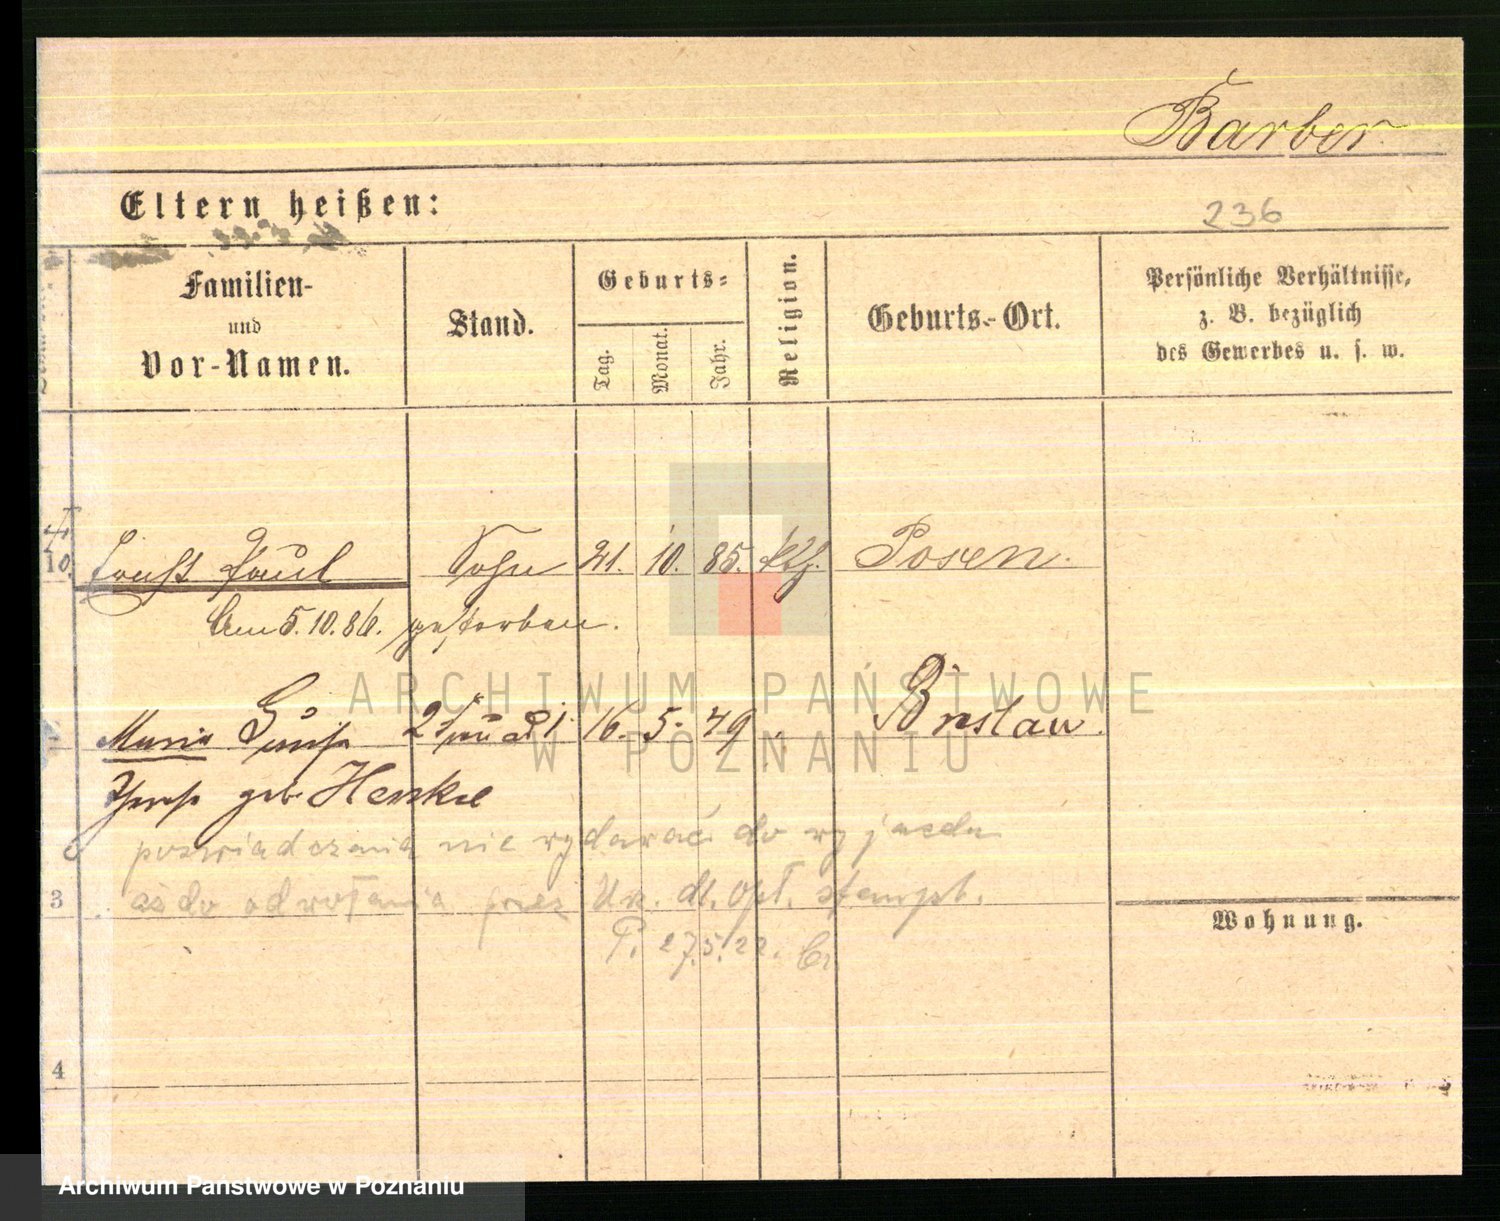 Barber
Eltern heißen:
236
Familien-
und
Vor-Namen.
Stand.
Geburts-
Tag.
Monat.
Jahr.
Religion.
Geburts-Ort.
Persönliche Verhältnisse,
z. B. bezüglich
des Gewerbes u. s. w.
10. Ernst Paul Sohn 21. 10. 85. kth. Posen.
Am 5.10.86. gestorben.
Maria Luise 2 16. 5. 79 Breslau.
geb. Henkel
poświadczenia nie wydawać do wyjazdu
aż do odwołania przez Urz. dl. Opł. stempl.
P. 27.5.22.
3
Wohnung.
4
ARCHIWUM PAŃSTWOWE
W POZNANIU
Archiwum Państwowe w Poznaniu